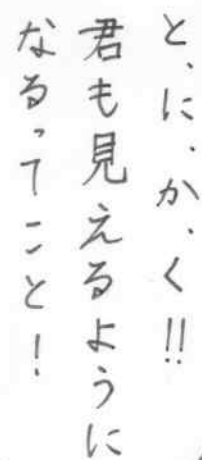 と、に、か、く!!
君も見えるように
なるってこと!